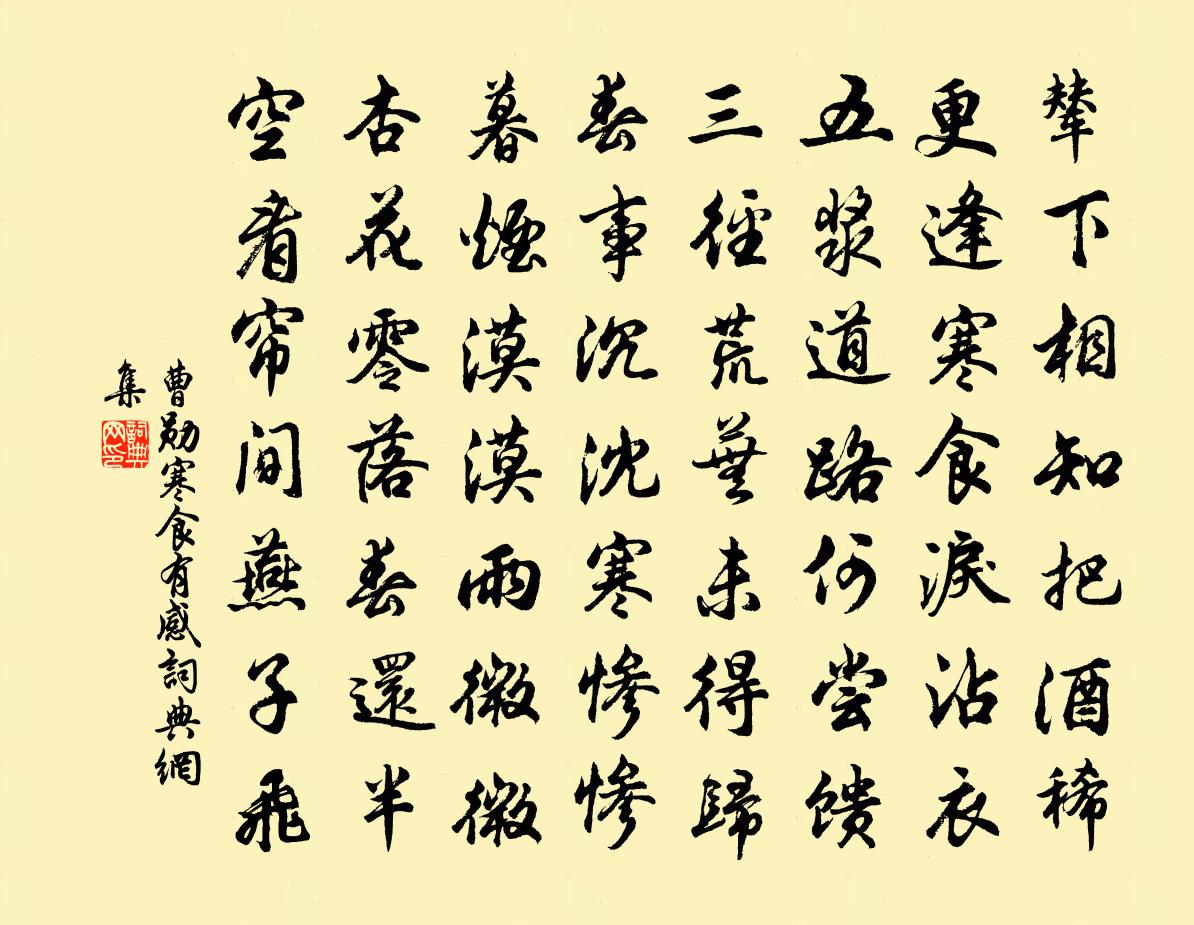 輦下相知把酒稀
更逢寒食淚沾衣
五漿道路何尝馈
三徑荒蕪未得歸
春事沉沈寒慘慘
暮煙漠漠雨微微
杏花零落春還半
空看帘间燕子飛
曹勛寒食有感詞典網
集
詞典
网印